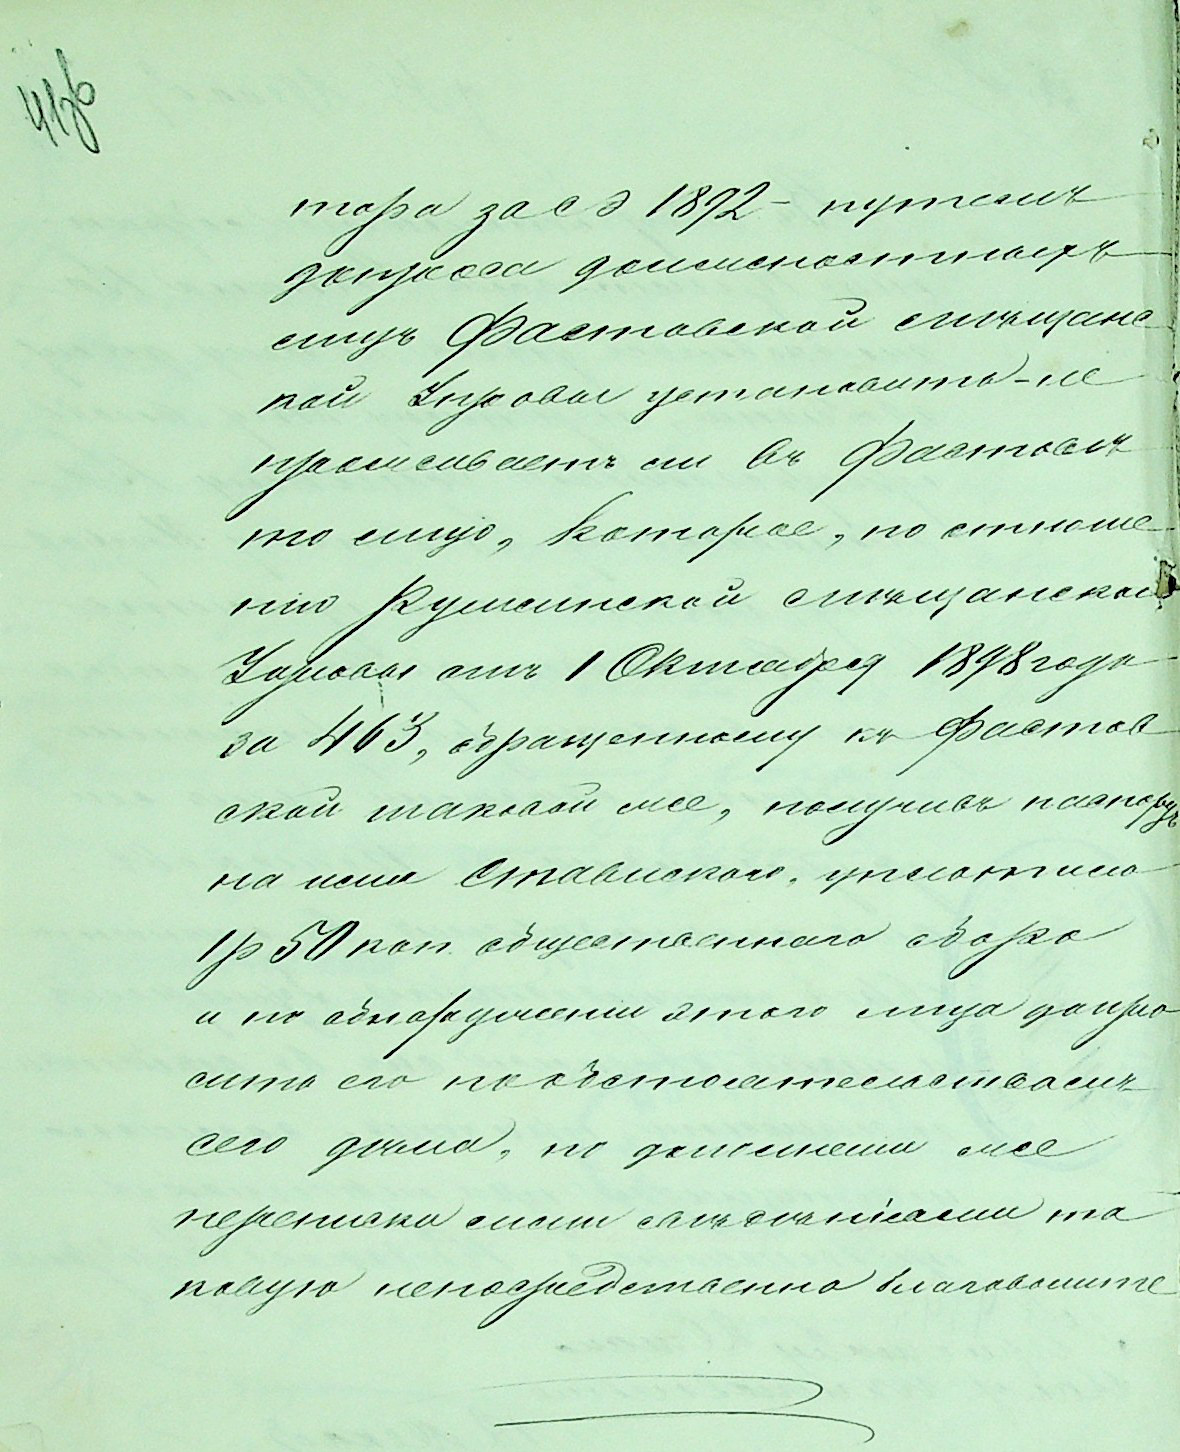 41об
тора за с э 1892 - путемъ
допроса должностныхъ
лицъ Фастовской мѣщанс
кой Управы установить - не
проживаетъ ли въ Фастовѣ
то лицо, которое, по отноше
нію Ружинской мѣщанской
Управы отъ 1 Октября 1898 года
за 463, обращенному къ Фастов
ской таковой же, получивъ паспортъ
на имя Ставискаго, уплатило
1 р 50 коп. общественнаго сбора
и по обнаруженіи этого лица допро
сить его по обстоятельствамъ
сего дѣла, по дополненіи же
переписки сими свѣдѣніями та
ковую непосредственно благоволите